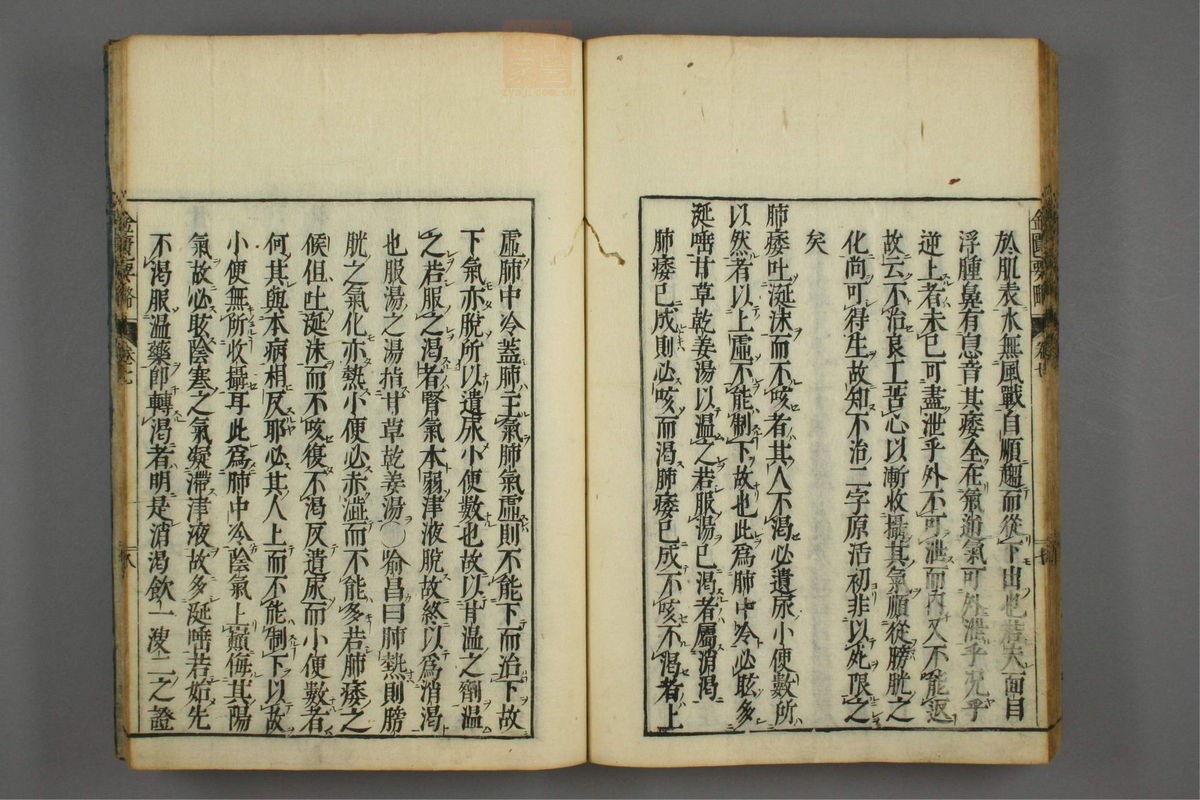 於肌表水無風戰自順趨而從下出也若夫面目
浮腫鼻有息音其痿全在氣逆氣可外泄乎况乎
逆上者未已可盡泄乎外不可泄而内又不能返
故云不治良工苦心以漸收攝其氣順從膀胱之
化尚可得生故知不治二字原活初非以死限之
矣
肺痿吐涎沫而不咳者其人不渴必遺尿小便數所
以然者以上虛不能制下故也此為肺中冷必眩多
涎唾甘草乾姜湯以温之若服湯已渴者屬消渴
肺痿已成則必咳而渴肺痿已成不咳不渴者上
虛肺中冷蓋肺主氣肺氣虛則不能下而治下故
下氣亦脫所以遺尿小便數也故以甘温之劑温
之若服之渴者腎氣本弱津液脫故終以為消渴
也服湯之湯指甘草乾姜湯○喻昌曰肺熱則膀
胱之氣化亦熱小便必赤澁而不能多若肺痿之
候但吐涎沫而不咳復不渴反遺尿而小便數者
何其與本病相反耶必其人上而不能制下以故
小便無所收攝耳此為肺中冷陰氣上巔侮其陽
氣故必眩陰寒之氣凝滯津液故多涎唾若始先
不渴服温藥即轉渴者明是消渴飲一溲二之證
金匱要略
金匱要略